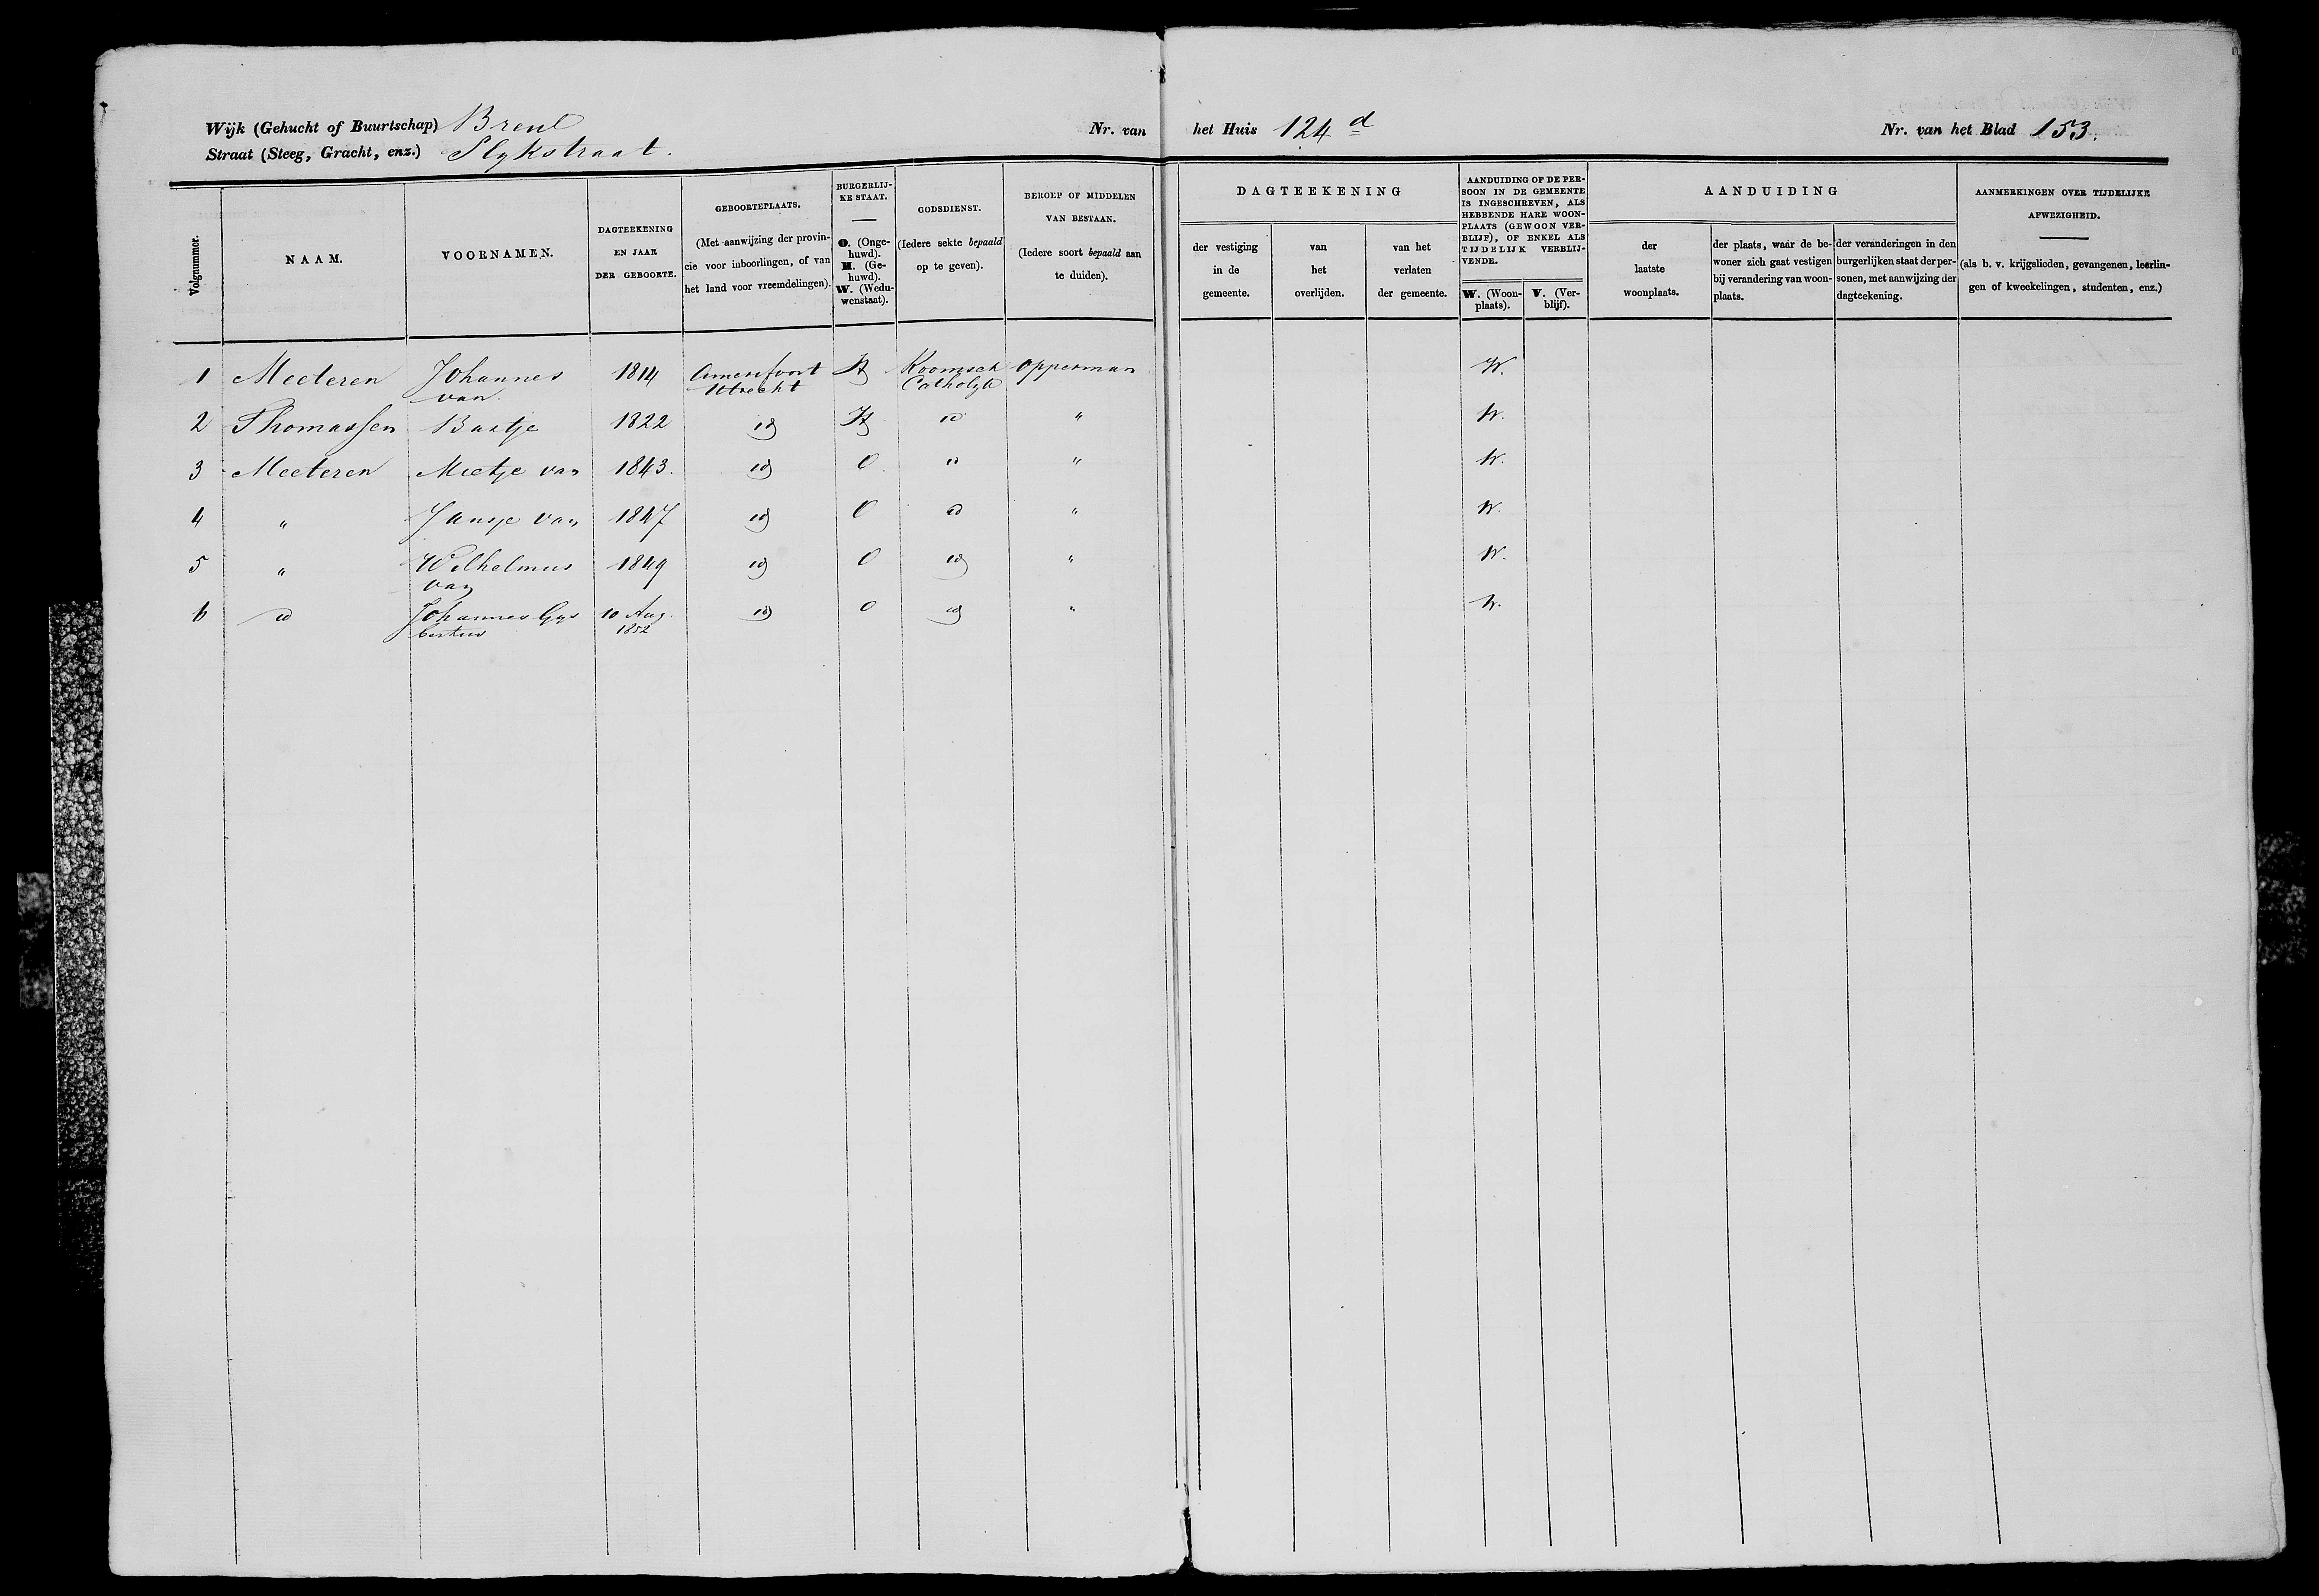 Wijk (Gehucht of Buurtschap) Breul Nr. van het Huis 124 d Nr. van het Blad 153.
Straat (Steeg, Gracht, enz.) Slykstraat.
Volgnummer.
NAAM.
VOORNAMEN.
DAGTEEKENING
EN JAAR
DER GEBOORTE.
GEBOORTEPLAATS.
(Met aanwijzing der provin-
cie voor inboorlingen, of van
het land voor vreemdelingen).
BURGERLIJ-
KE STAAT.
O. (Onge-
huwd).
H. (Ge-
huwd).
W. (Wedu-
wenstaat).
GODSDIENST.
(Iedere sekte bepaald
op te geven).
BEROEP OF MIDDELEN
VAN BESTAAN.
(Iedere soort bepaald aan
te duiden).
DAGTEEKENING
der vestiging
in de
gemeente.
van
het
overlijden.
van het
verlaten
der gemeente.
AANDUIDING OF DE PER-
SOON IN DE GEMEENTE
IS INGESCHREVEN, ALS
HEBBENDE HARE WOON-
PLAATS (GEWOON VER-
BLIJF), OF ENKEL ALS
TIJDELIJK VERBLIJ-
VENDE.
W. (Woon-
plaats).
V. (Ver-
blijf).
AANDUIDING
der
laatste
woonplaats.
der plaats, waar de be-
woner zich gaat vestigen
bij verandering van woon-
plaats.
der veranderingen in den
burgerlijken staat der per-
sonen, met aanwijzing der
dagteekening.
AANMERKINGEN OVER TIJDELIJKE
AFWEZIGHEID.
(als b. v. krijgslieden, gevangenen, leerlin-
gen of kweekelingen, studenten, enz.)
1 Meeteren Johannes 1814 Amersfoort H Roomsch Opperman W.
van Utrecht Catholyk
2 Thomassen Baatje 1822 id H id " W.
3 Meeteren Mietje van 1843. id O. id " W.
4 " Jansje van 1847 id O id " W.
5 " Wilhelmus 1849 id O id " W.
van
6 id Johannes Gys 10 Aug. id O id " W.
bertus 1852